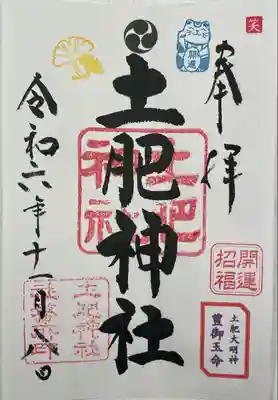 笑
奉拝
開運
土肥神社
土肥神社
開運
招福
土肥大明神
豊御玉命
令和六年十一月八日
土肥神社